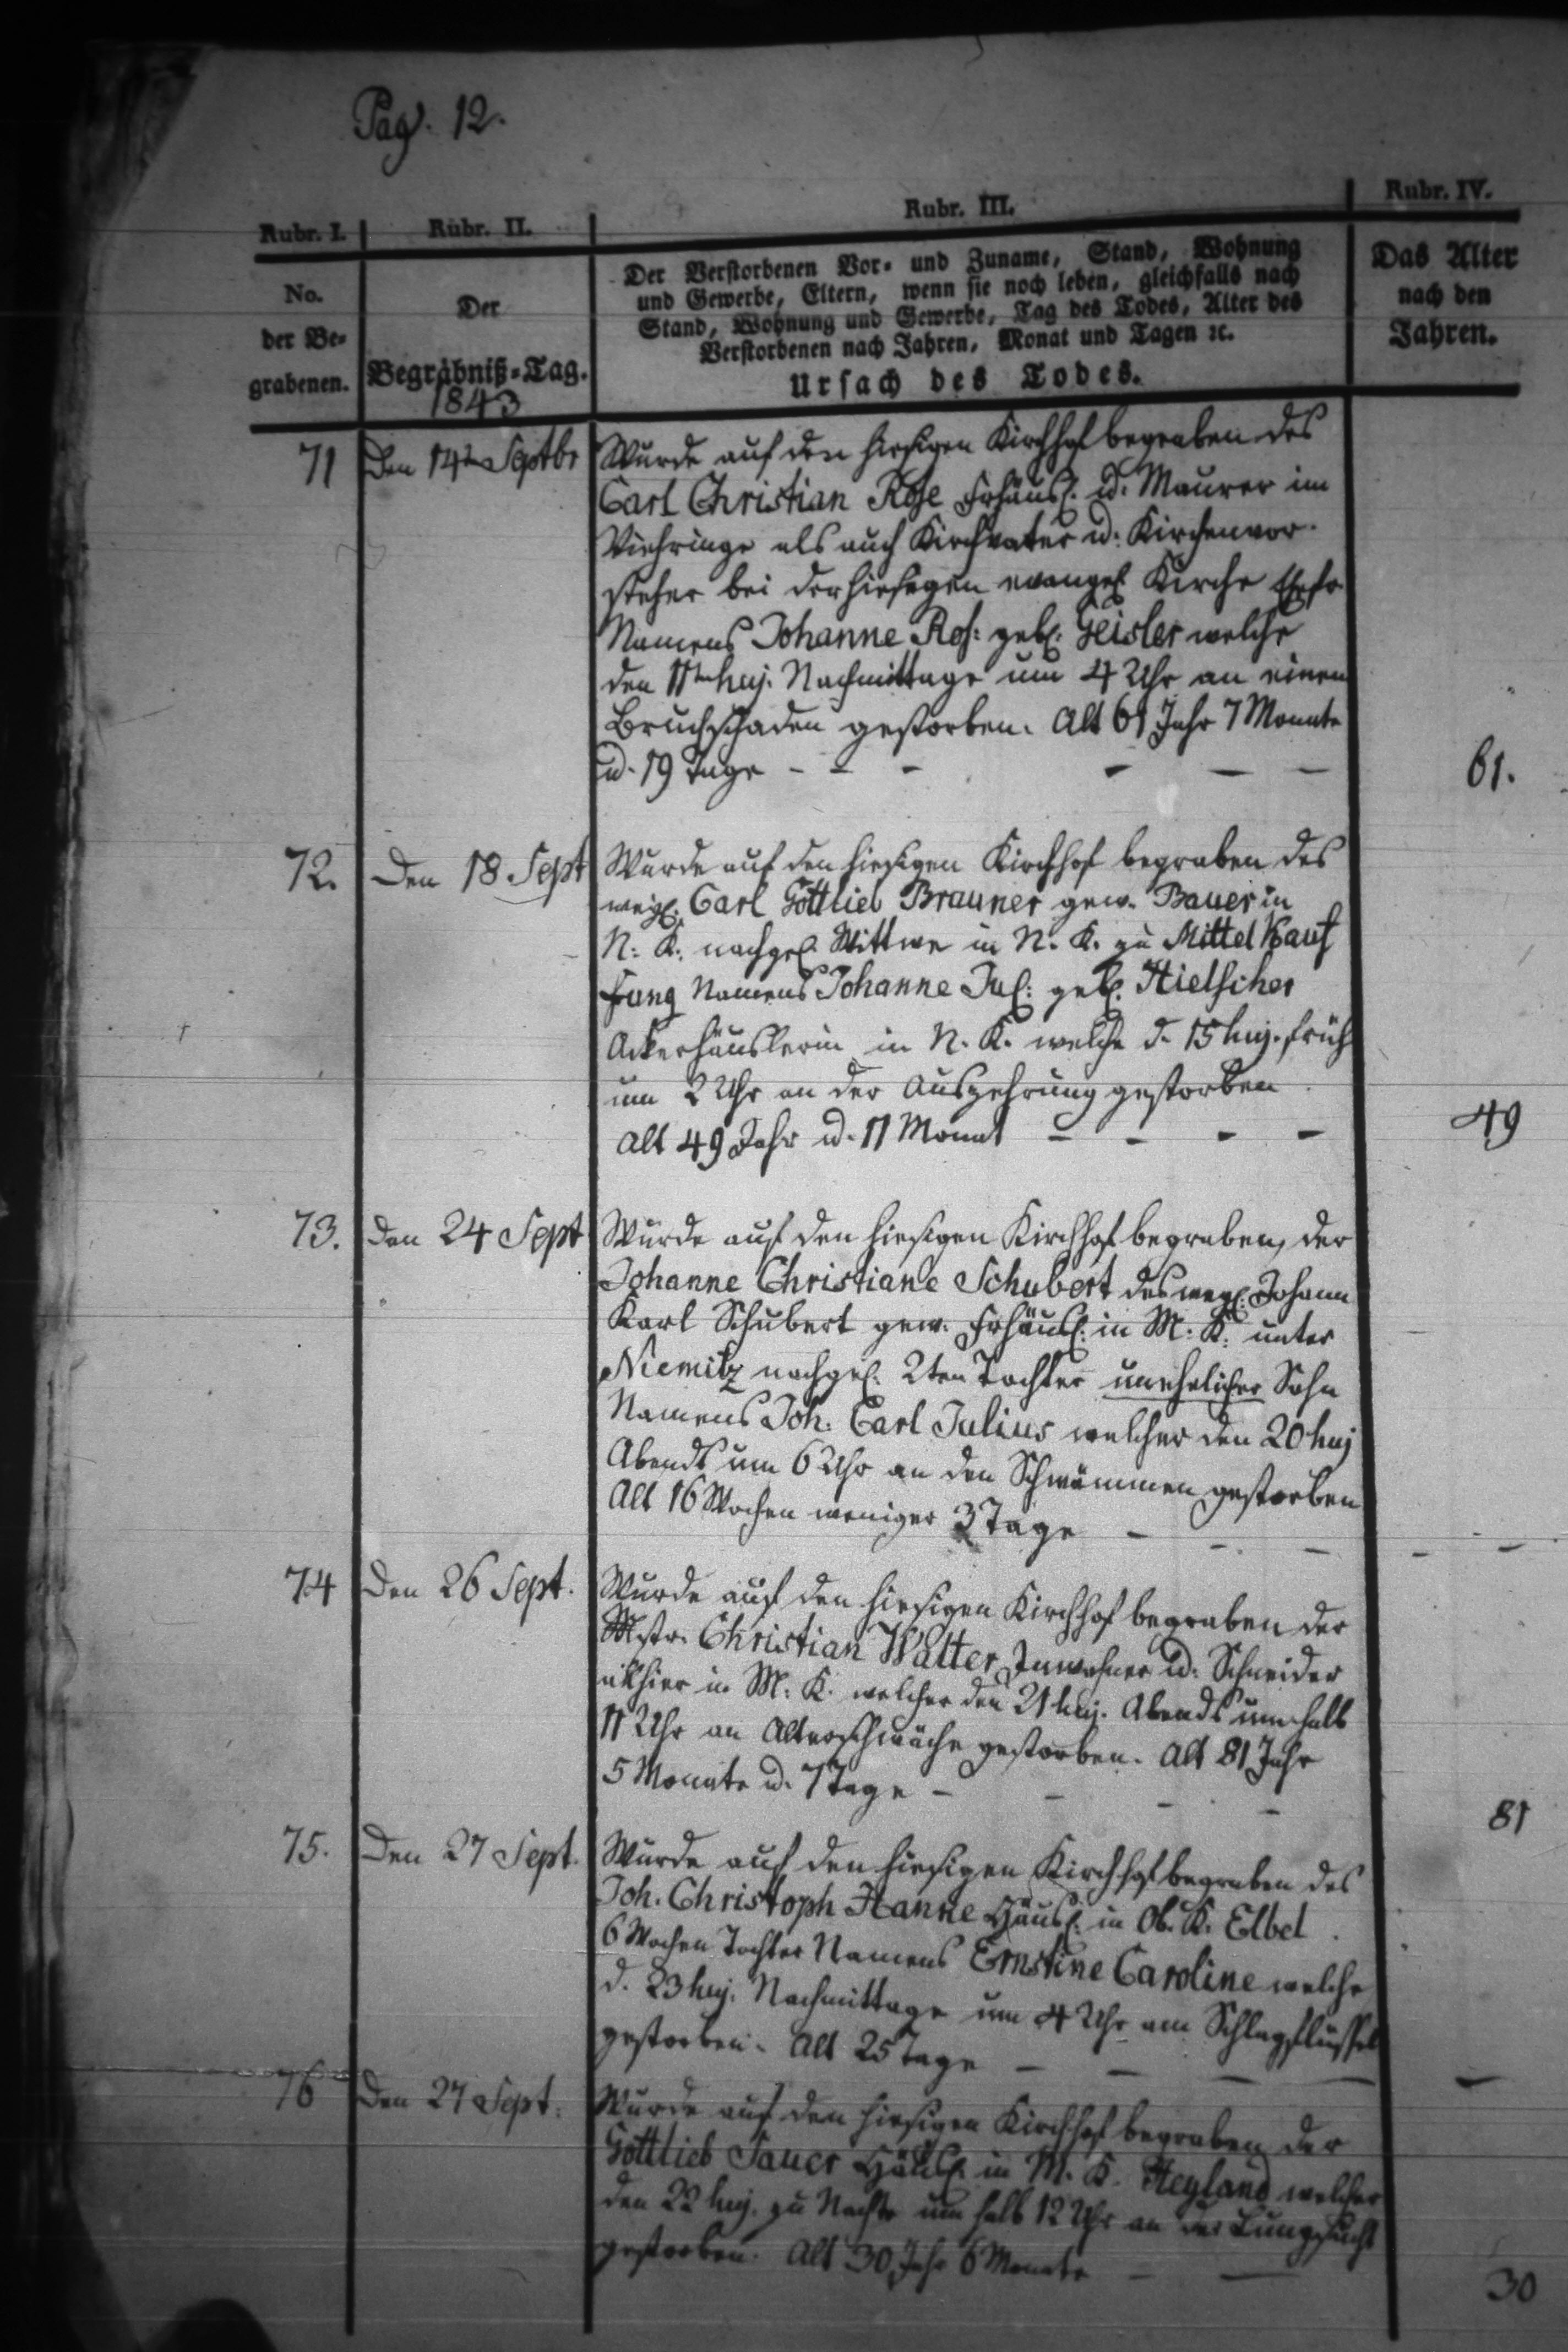 Pag. 12.
Rubr. I. Rubr. II. Rubr. III. Rubr. IV.
No.
der Be-
grabenen.
Der
Begräbniß-Tag.
1843
Der Verstorbenen Vor- und Zuname, Stand, Wohnung
und Gewerbe, Eltern, wenn sie noch leben, gleichfalls nach
Stand, Wohnung und Gewerbe, Tag des Todes, Alter des
Verstorbenen nach Jahren, Monat und Tagen ꝛc.
Ursach des Todes.
Das Alter
nach den
Jahren.
71 Den 14ten Septbr Wurde auf den hiesigen Kirchhof begraben des
Carl Christian Rose Frhäusl. u. Maurer im
Viehringe als auch Kirchvater u: Kirchenvor-
steher bei der hiesigen evangel. Kirche Ehefr.
Namens Johanne Ros: geb. Geisler welche
den 11ten huj. Nachmittage um 4 Uhr an einen
Bruchschaden gestorben. Alt 61 Jahr 7 Monate
u. 19 Tage - - - - - - 61.
72. Den 18 Sept Wurde auf den hiesigen Kirchhof begraben des
weyl. Carl Gottlieb Brauner gew. Bauer in
N: K: nachgel. Wittwe in N. K. zu Mittel Kauf
fung Namens Johanne Jul: geb. Hielscher
Ackerhäuslerin in N. K. welche d. 15 huj. früh
um 2 Uhr an der Auszehrung gestorben
Alt 49 Jahr u. 11 Monat - - - - 49
73. Den 24 Sept Wurde auf den hiesigen Kirchhof begraben, der
Johanne Christiane Schubert des weyl. Johann
Karl Schubert gew. Frhäusl. in M. K. unter
Niemitz nachgel. 2ten Tochter unehelicher Sohn
Namens Joh. Carl Julius welcher den 20 huj
Abends um 6 Uhr an den Schwämmen gestorben
Alt 16 Wochen weniger 3 Tage - - - - -
74 Den 26 Sept. Wurde auf den hiesigen Kirchhof begraben der
Mstr. Christian Walter Inwohner u: Schneider
allhier in M: K. welcher den 21 huj. Abends um halb
11 Uhr an Altersschwäche gestorben. Alt 81 Jahr
5 Monate u. 7 Tage - - - - 81
75. Den 27 Sept. Wurde auf den hiesigen Kirchhof begraben des
Joh. Christoph Hanne Häusl. in Ob. K. Elbel
6 Wochen Tochter Namens Ernstine Caroline welche
d. 23 huj. Nachmittage um 4 Uhr am Schlagflussel
gestorben. Alt 25 Tage - - - - -
76 Den 27 Sept. Wurde auf den hiesigen Kirchhof begraben der
Gottlieb Sauer Häusl. in M. K. Heyland welcher
den 22 huj. zu Nachts um halb 12 Uhr an der Lungsucht
gestorben. Alt 30 Jahr 6 Monate - - 30